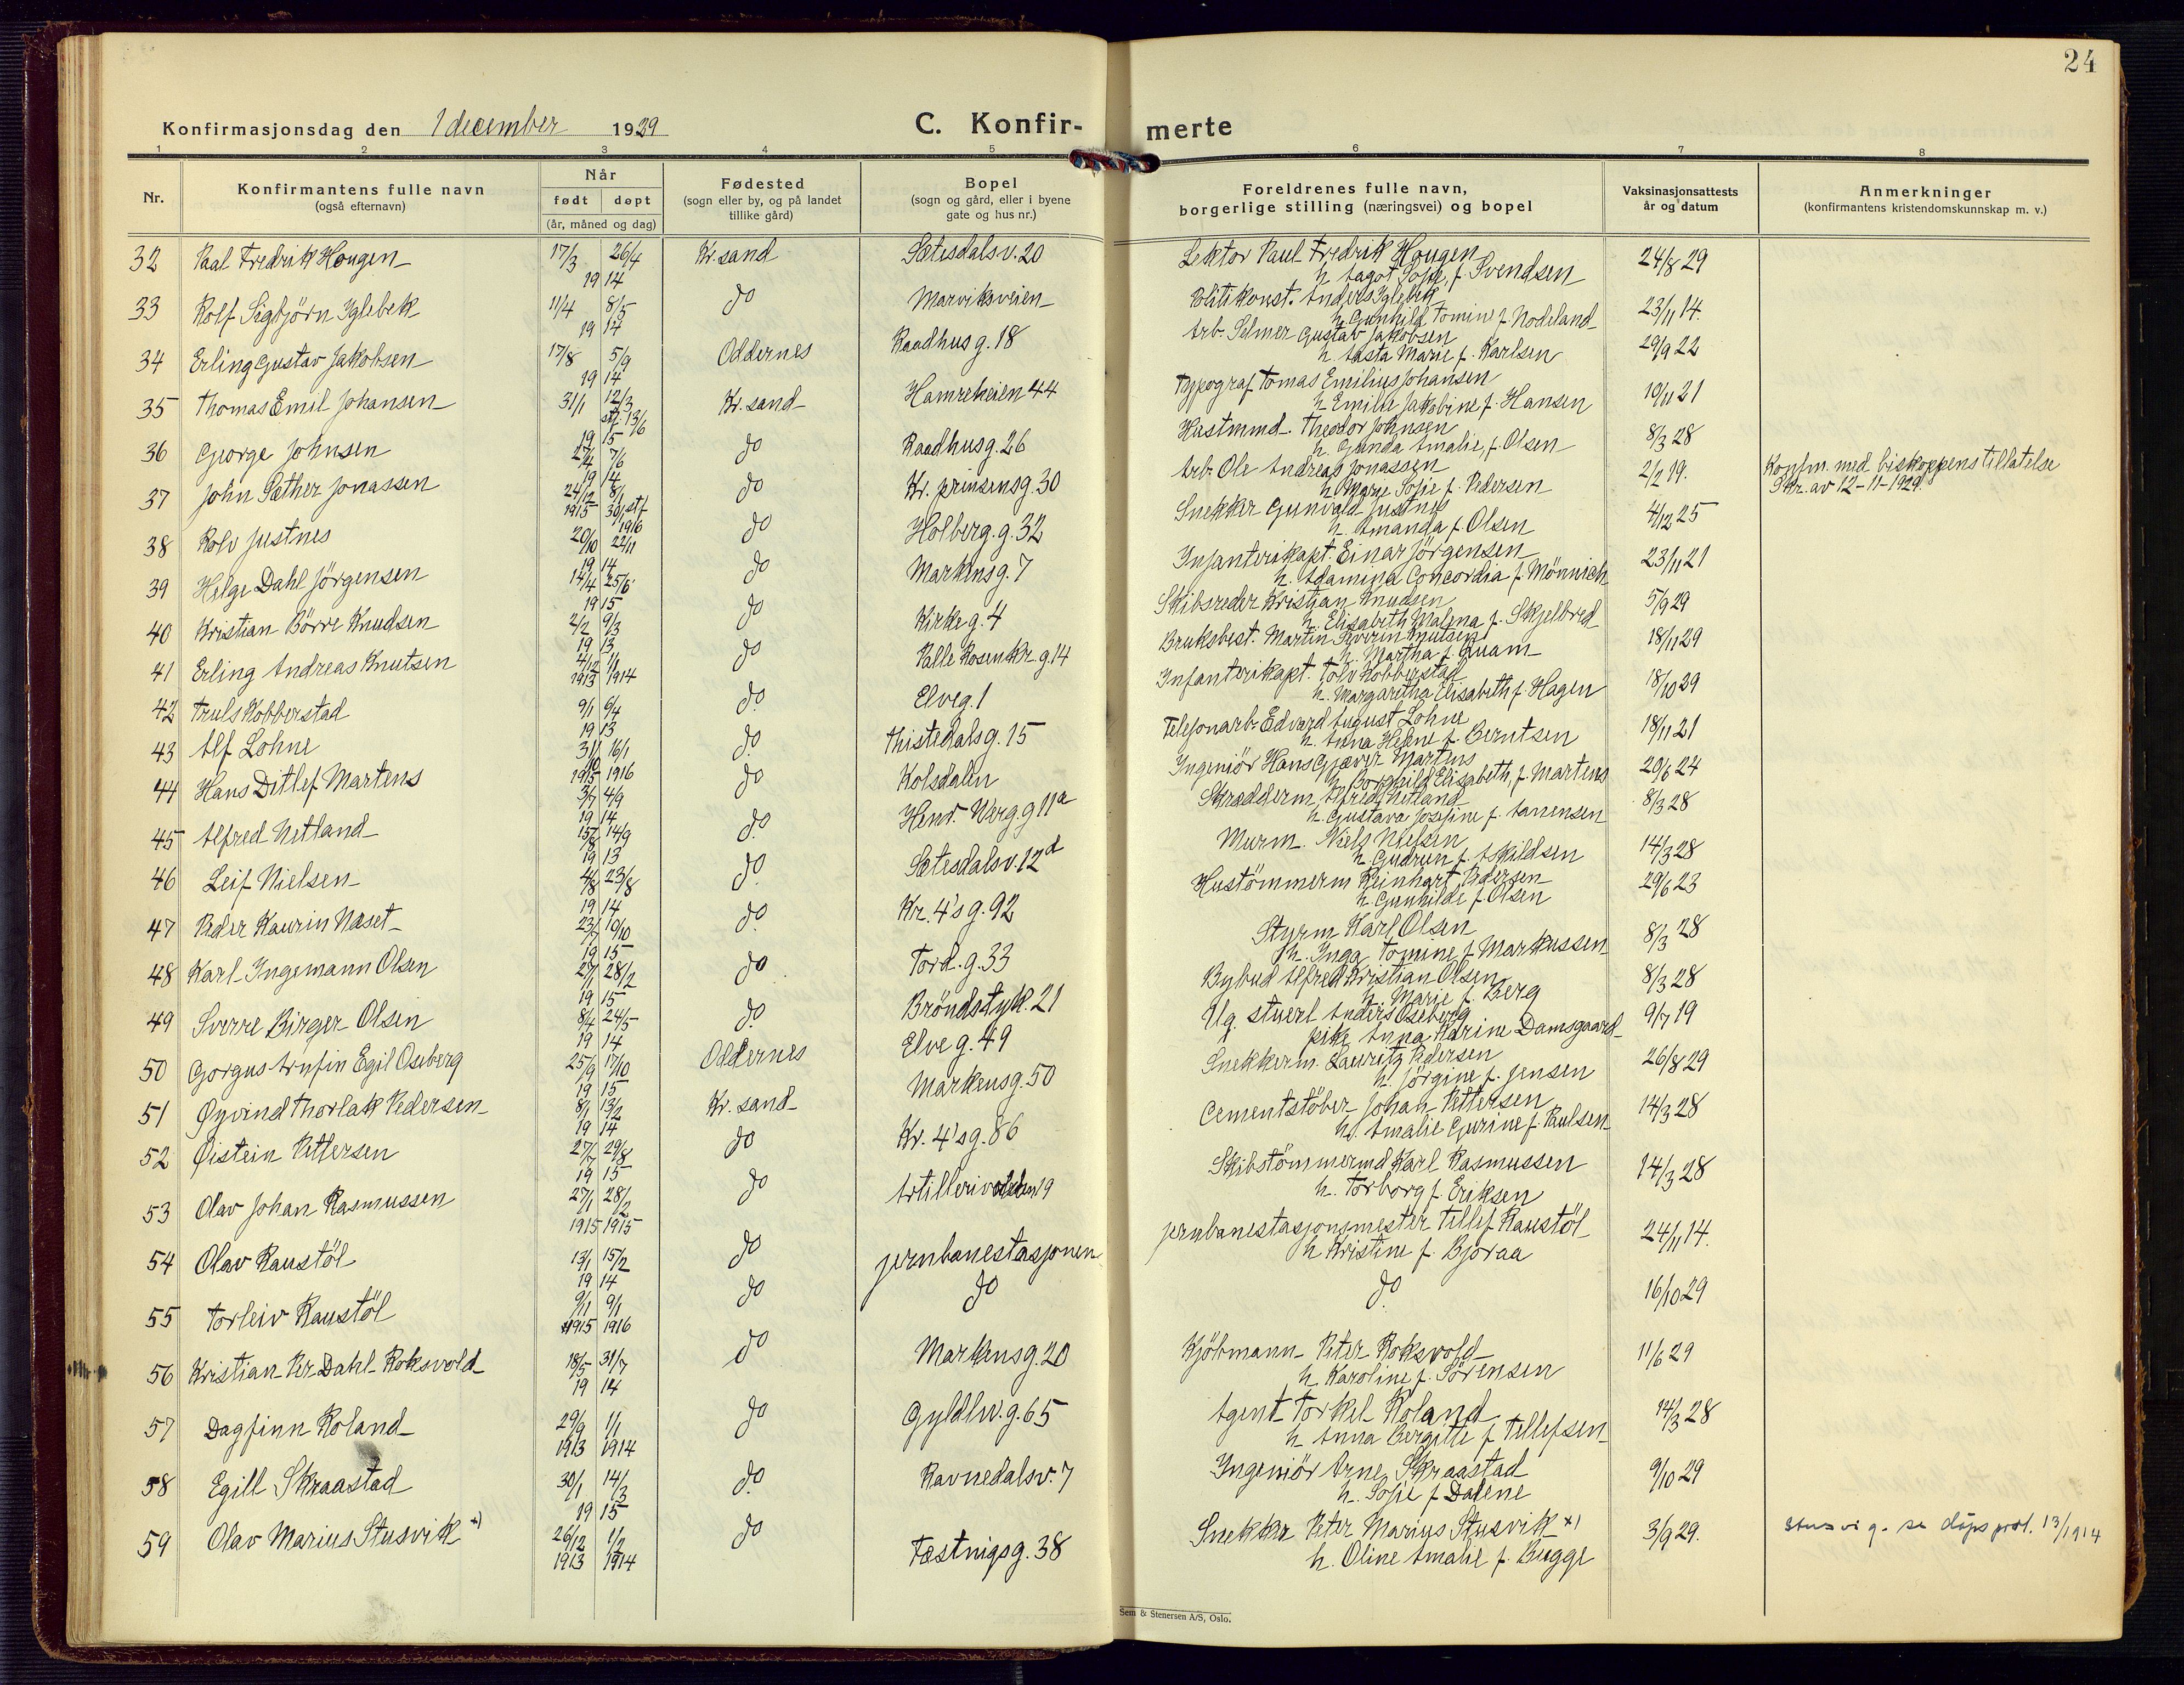 24
Konfirmasjonsdag den 1 december 1929
C. Konfir-merte
1 2 3 4 5 6 7 8
Nr.
Konfirmantens fulle navn
(også efternavn)
Når
født døpt
(år, måned og dag)
Fødested
(sogn eller by, og på landet
tillike gård)
Bopel
(sogn og gård, eller i byene
gate og hus nr.)
Foreldrenes fulle navn,
borgerlige stilling (næringsvei) og bopel
Vaksinasjonsattests
år og datum
Anmerkninger
(konfirmantens kristendomskunnskap m. v.)
32 Paal Fredrik Hougen 17/3 26/4 1914 Kr.sand Sætesdalsv. 20 Lektor Paul Fredrik Hougen 24/8 29
h. Aagot Sofie, f. Svendsen
33 Rolf Sigbjörn Iglebek 11/4 8/5 1914 do Marviksveien Politikonst. Anders Iglebek 23/11 14.
h. Gunhild Tomine f. Nodeland
34 Erling Gustav Jakobsen 17/8 5/9 1914 Oddernes Raadhusg. 18 Arb. Selmer Gustav Jakobsen 29/9 22
h. Aasta Marie f. Karlsen
35 Thomas Emil Johansen 31/1 12/3 stf. 13/6 1915 Kr.sand Hamreheien 44 Typograf Tomas Emilius Johansen 19/11 21
h. Emilie Jakobine f. Hansen
36 George Johnsen 27/4 7/6 1914 do Raadhusg. 26 Hustmmd. Theodor Johnsen 8/3 28
h. Gunda Amalie, f. Olsen
37 John Sæther Jonassen 24/12 8/1 1915 30/1 stf 1916 do Kr. prinsensg. 30 Arb. Ole Andreas Jonassen 2/2 19. Konfm. med biskoppens tillatelse
h. Marie Sofie f. Pedersen Skr. av 12-11-1929.
38 Rolv Justnes 20/10 22/11 1914 do Holberg.g. 32 Snekker Gunvald Justnes 4/12 25
h. Amanda f. Olsen
39 Helge Dahl Jörgensen 14/4 25/6 1915 do Markensg. 7 Infanterikapt. Einar Jörgensen 23/11 21
h. Adamina Concordia f. Mönnich
40 Kristian Börre Knudsen 2/2 9/3 1913 do Kirkeg. 4 Skibsreder Kristian Knudsen 5/9 29
h. Elisabeth Malena f. Skjelbred
41 Erling Andreas Knutsen 4/12 1/1 1913 1914 do Palle Rosenkr.g. 14 Bruksbest. Martin Severin Knutsen 18/11 29
h. Martha f. Quam
42 Truls Kobberstad 9/1 6/4 1913 do Elveg. 1 Infanterikapt. Tolv Kobberstad 18/10 29
h. Margaretha Elisabeth f. Hagen
43 Alf Lohne 31/10 16/1 1915 1916 do Thistedalsg. 15 Telefonarb. Edvard August Lohne 18/11 21
h. Anna Helene f. Berntsen
44 Hans Ditlef Martens 3/7 4/9 1914 do Kolsdalen Ingeniör Hans Gjæver Martens 20/6 24
h. Borghild Elisabeth, f. Martens
45 Alfred Netland 15/8 14/9 1913 do Henr. Werg.g 11a Skredderm Alfred Netland 8/3 28
h. Gustava Josefine f. Aanensen
46 Leif Nielsen 4/8 23/8 1914 do Sætesdalsv. 12d Murm. Niels Nielsen 14/3 28
h. Gudrun f. Askildsen
47 Peder Kaurin Næset 23/7 10/10 1915 do Kr. 4's g. 92 Hustömmerm Reinhart Pedersen 29/6 23
h. Gunhilde f. Olsen
48 Karl Ingemann Olsen 27/1 28/2 1915 do Tord.g. 33 Styrm Karl Olsen 8/3 28
h. Inga Tomine f. Markussen
49 Sverre Birger Olsen 8/4 24/5 1914 do Bröndstyk. 21 Bybud Alfred Kristian Olsen 8/3 28
h. Marie f. Berg
50 Gorgus Arnfin Egil Oseberg 25/9 17/10 1915 Oddernes Elveg. 49 Ug. stuerl Anders Oseberg 9/7 19
pike Anna Karine Damsgaard
51 Øyvind Thorlak Pedersen 8/1 13/2 1914 Kr. sand Markensg. 50 Snekkerm. Lauritz Pedersen 26/8 29
h. Jörgine f. Jensen
52 Øistein Pettersen 27/7 29/8 1915 do Kr. 4's g. 86 Cementstöber Johan Pettersen 14/3 28
h. Amalie Gurine f. Paulsen
53 Olav Johan Rasmussen 27/1 28/2 1915 1915 do Artillerivolden 19 Skibstömmermd Karl Rasmussen 14/3 28
h. Torborg f. Eriksen
54 Olav Raustöl 13/1 15/2 1914 do jernbanestasjonen jernbanestasjonsmester Tellef Raustöl 24/11 14.
h Kristine f. Bjoraa
55 Torleiv Raustöl 9/11 9/1 1915 1916 do do do 16/10 29
56 Kristian Per Dahl Roksvold 18/5 31/7 1914 do Markensg. 20 Kjöbmann Peter Roksvold 11/6 29
h. Karoline f. Sörensen
57 Dagfinn Roland 29/9 1/1 1913 1914 do Gyldlw.g. 65 Agent Torkel Roland 14/3 28
h. Anna Bergitte f Tellefsen
58 Egill Skraastad 30/1 14/3 1915 do Ravnedalsv. 7 Ingeniör Arne Skraastad 9/10 29
h. Sofie f Dalene
59 Olav Marius Stusvik x) 26/12 1/2 1913 1914 do Festnigsg. 38 Snekker Peter Marius Stusvik x) 3/9 29. Stusvig. se dåpsprot. 13/1914
h. Oline Amalie f. Bugge
Sem & Stenersen A/S, Oslo.